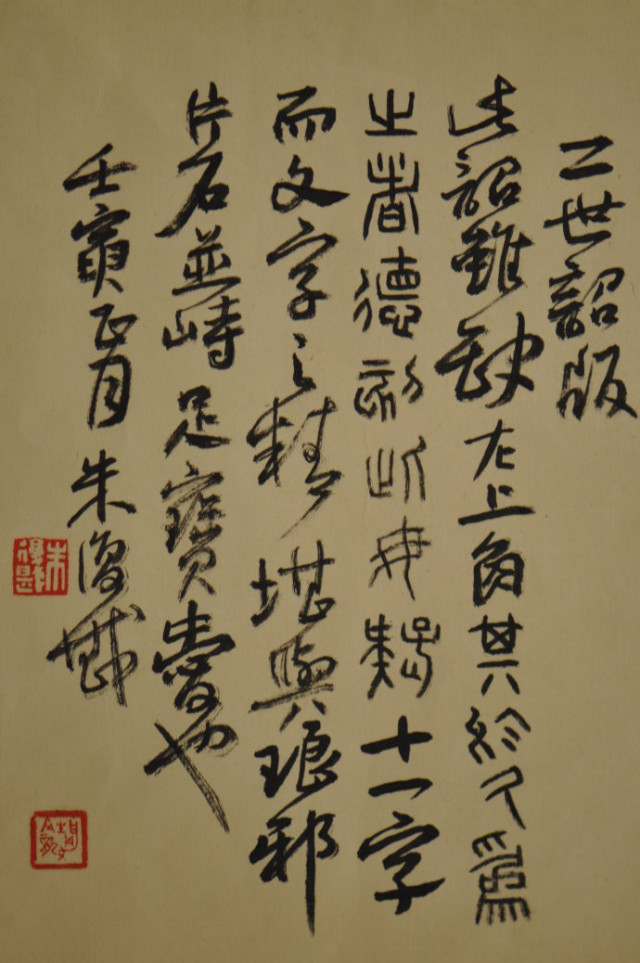 二世詔版
此詔雖缺左上角其於久為
之者德刻此毋疑十一字
而文字之精堪與琅邪
片石並峙足寶愛也
壬寅正月朱復戡